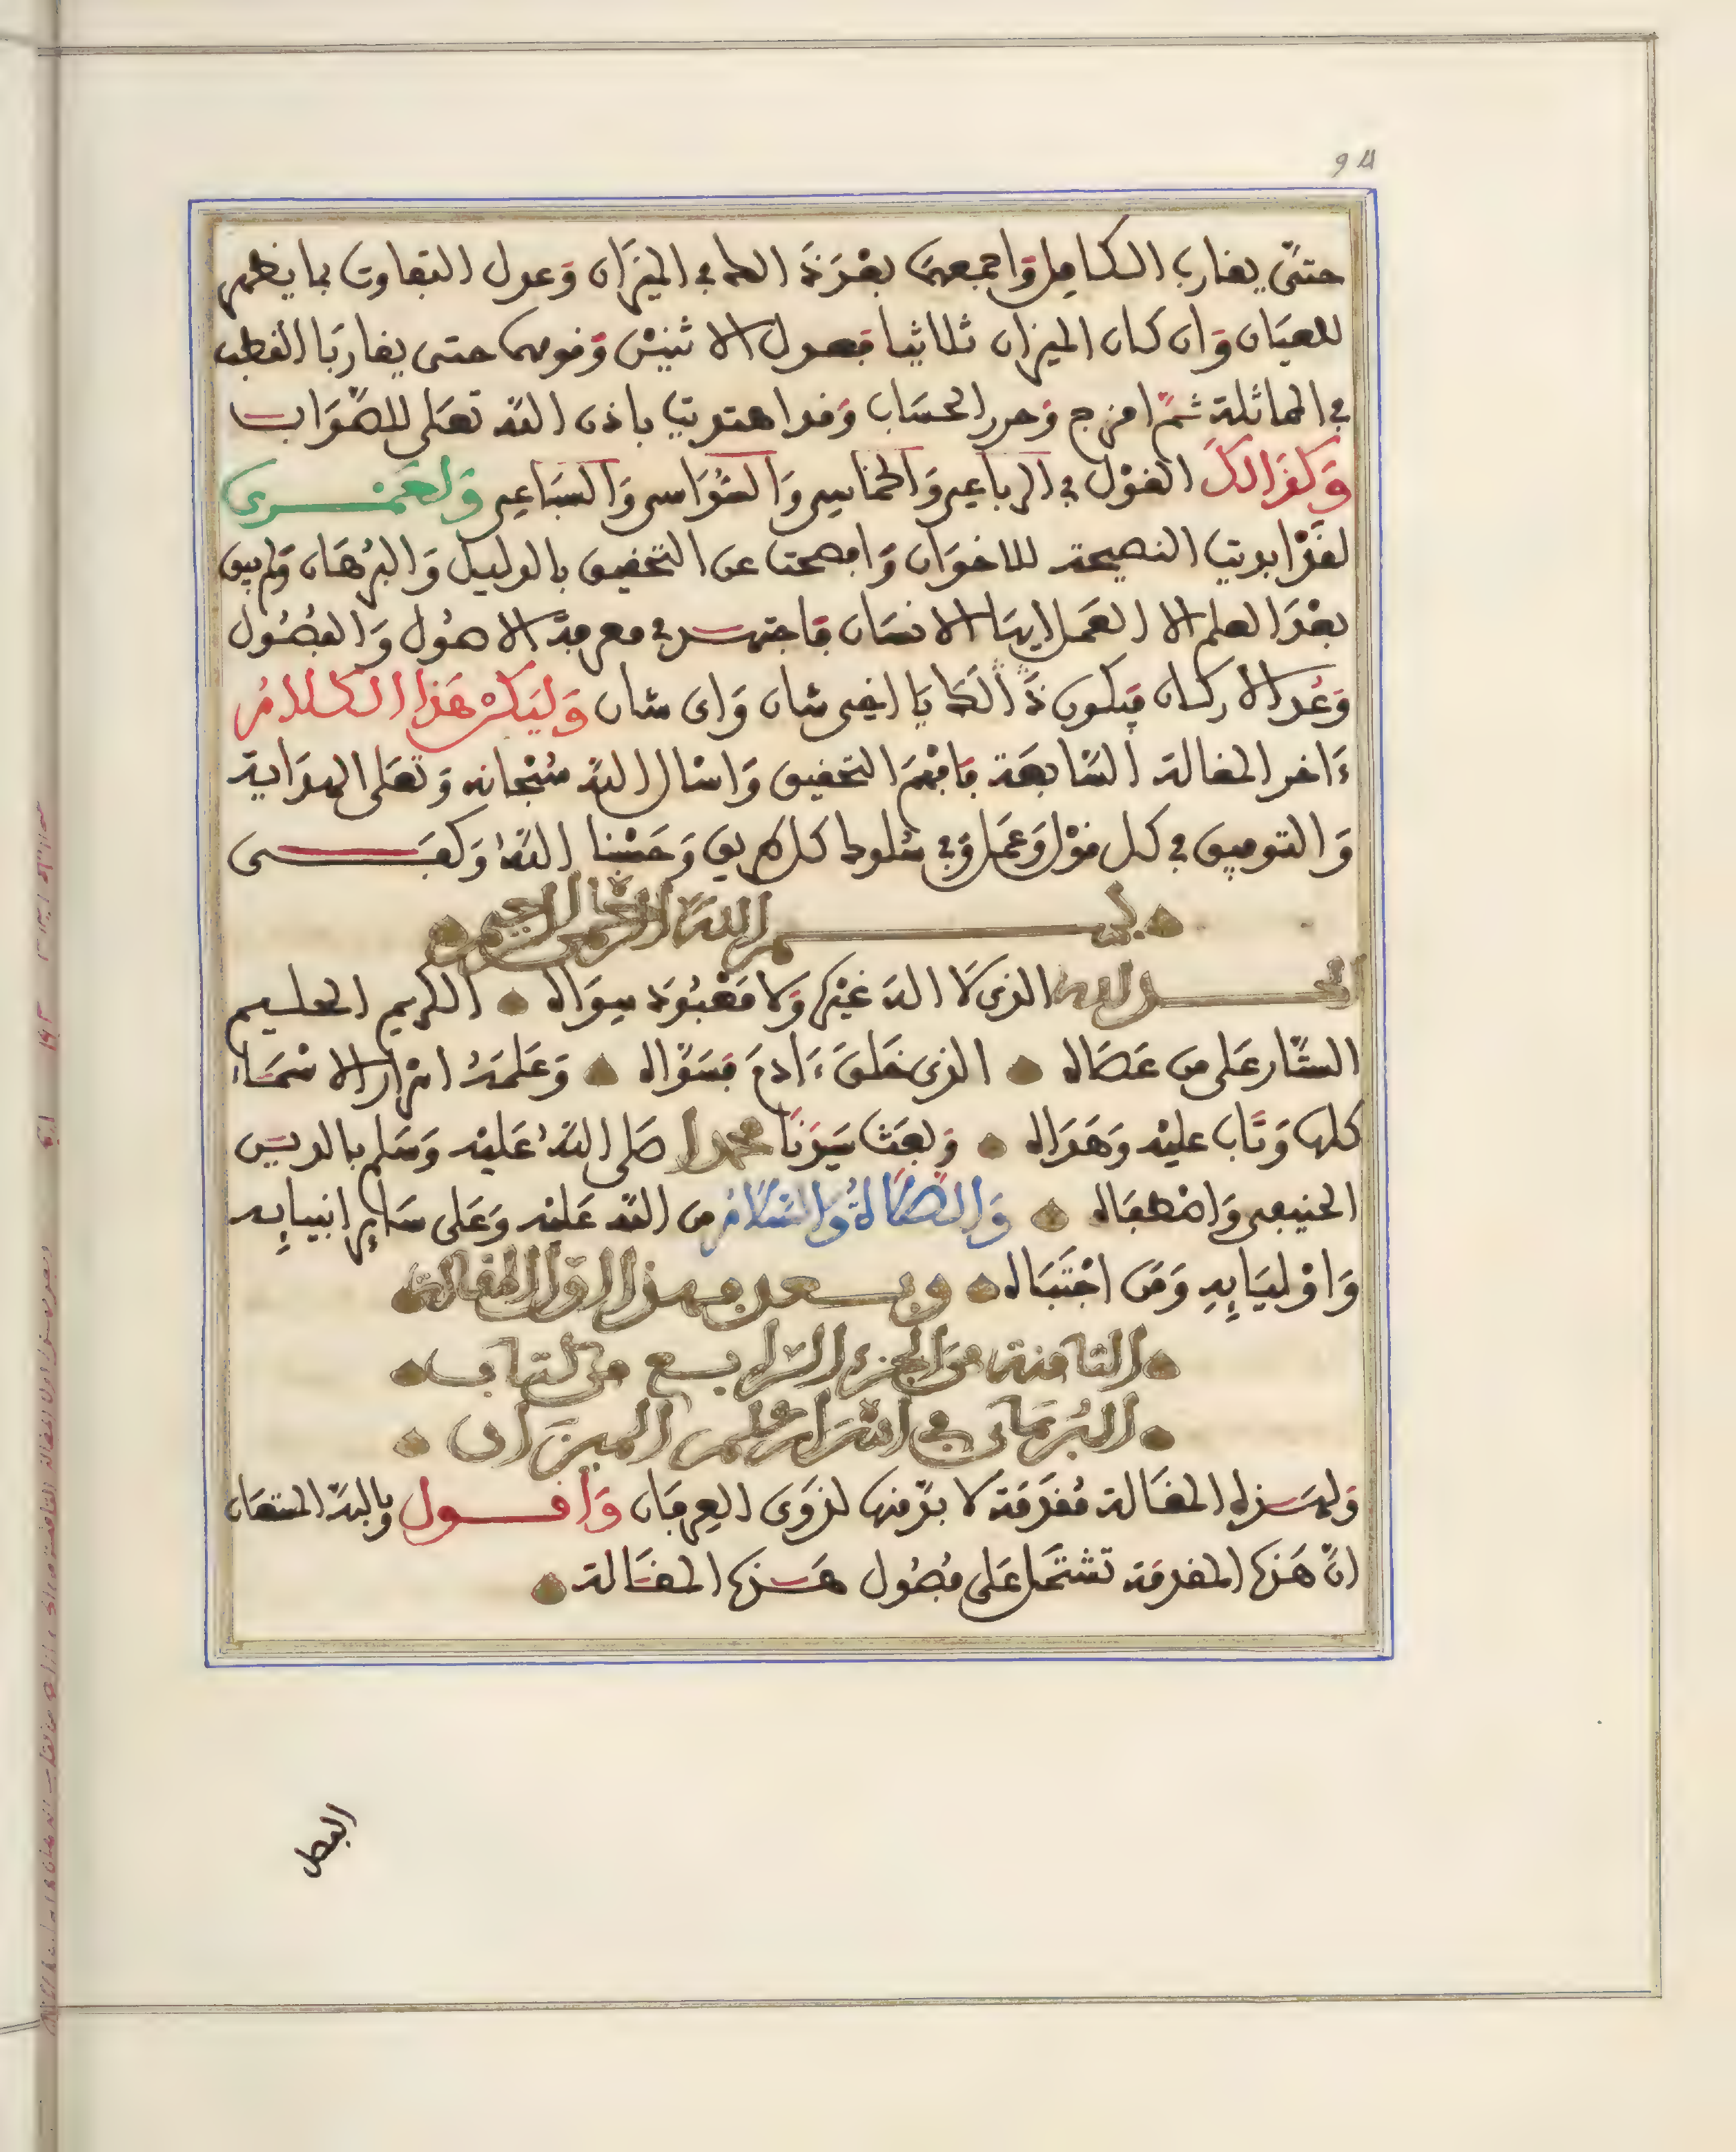 حتىّ يقارب الكامل وَاجمعهمَا بعْدَ ذَا العلم في الميزَان وَعول التفاوت بما يظهر
للعيَان وَان كان الميزان ثلاثيا فعدول الاثنيْن وَقومهما حتى يقاربَا القطب
في المماثلة ثمّ امزج وَحرر الحسَاب وَقد اهتديت باذن اللّه تعَلى للصّوَاب
وَكذَالكَ القوْل في الرباعي وَالخماسي وَالسُّدَاسي وَالسّبَاعي وَلعَمْري
لقدْ ابديت النصيحة للاخوَان وَافصحت عن التحقيق بالدليل وَالبرْهَان وَلم يبق
بعْدَ العلم الا العَمل ايهَا الانسَان فاجتهد في معرفة الاصُول وَالفصُول
وَعُد الاركان فيكون ذَالك يَا اخي شان وَاى شان وَليَكنْ هَذا الكلامُ
ءَاخر المقالة السّابعَة فافْهم التحقيق وَاسْال اللّه سُبْحانه وَتعَلى الهدَاية
وَالتوفيق في كل قوْل وَعَمل وَفي سُلوك كل طريق وَحَسْبنا اللّهُ وَكفَى
بسم اللّه الرّحمن الرّحيم
الحمد لله الذى لَا اله غيْرُه وَلا مَعْبُودَ سِوَاه الكريم الحليم
السّتار عَلى من عَصَاه الذى خلقَ ءَادمَ فسَوَّاه وَعَلمَهُ اسْرار الاسْمَاء
كلها وَتَاب عليْه وَهَدَاه وَبعَث سَيدنَا محمدا صَلى اللّهُ عَليْه وَسَلم بالدين
الحنيفي وَاصْطفَاه وَالصّلَاةُ وَالسّلَامُ من اللّه عَليْه وَعَلى سَايرِ انبيايِه
وَاوْليَايِهِ وَمَن اجْتَبَاه وبعد فهذا اول المقالة
الثامنة من الجزء الرّابع من كتاب
البُرهَان في اسْرَار علم الميزَان
وَلهَذه المقَالة مُقدمَة لا بدّ منها لذوَى العِرفَان وَاقول وباللّه المستعَان
انّ هَذه المقدمَة تشتمَل عَلى فصُول هَذه المقَالة
الفصل